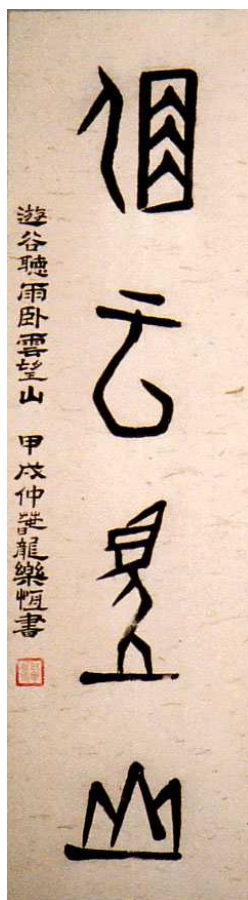 宿云望山
遊谷聽雨卧雲望山　甲戌仲春龍樂恆書